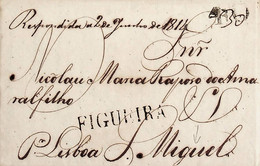 Respondida a 2 de Junho de 1814
Snr
Nicolau Maria Raposo do Ama
ral filho
FIGUEIRA
Pr Lisboa S. Miguel